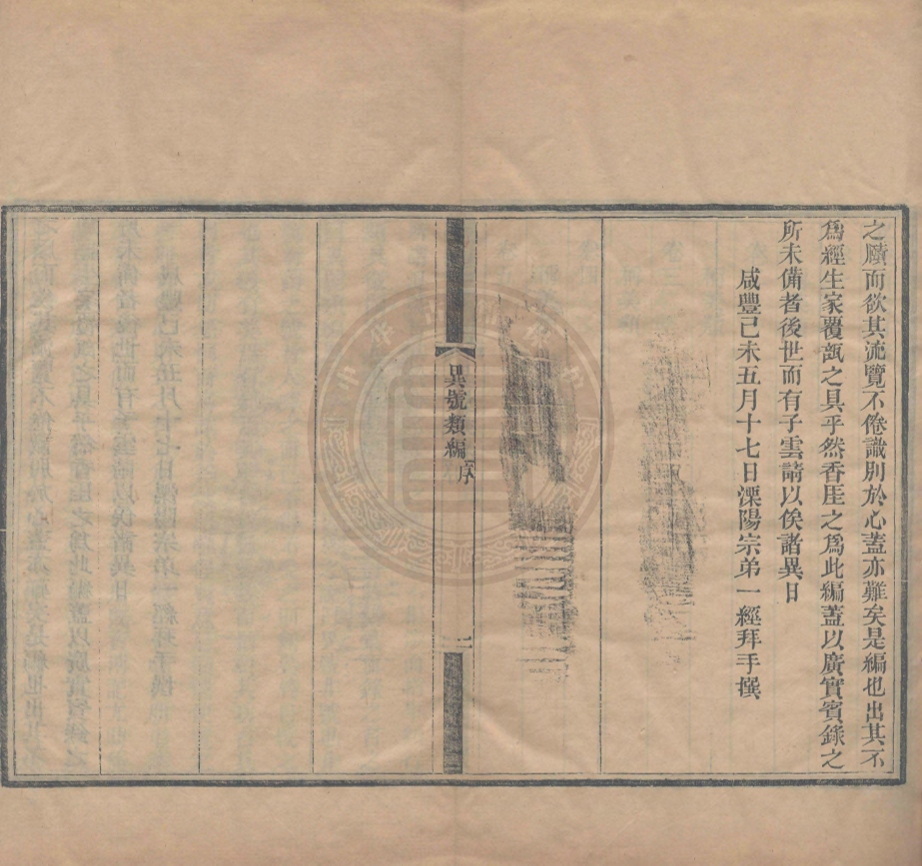 之牘而欲其流覽不倦識別於心蓋亦難矣是編也出其不
爲經生家覆瓿之具乎然香厓之爲此編蓋以廣實賓錄之
所未備者後世而有子雲請以俟諸異日
咸豐己未五月十七日溧陽宗弟一經拜手撰
異號類編 序
二